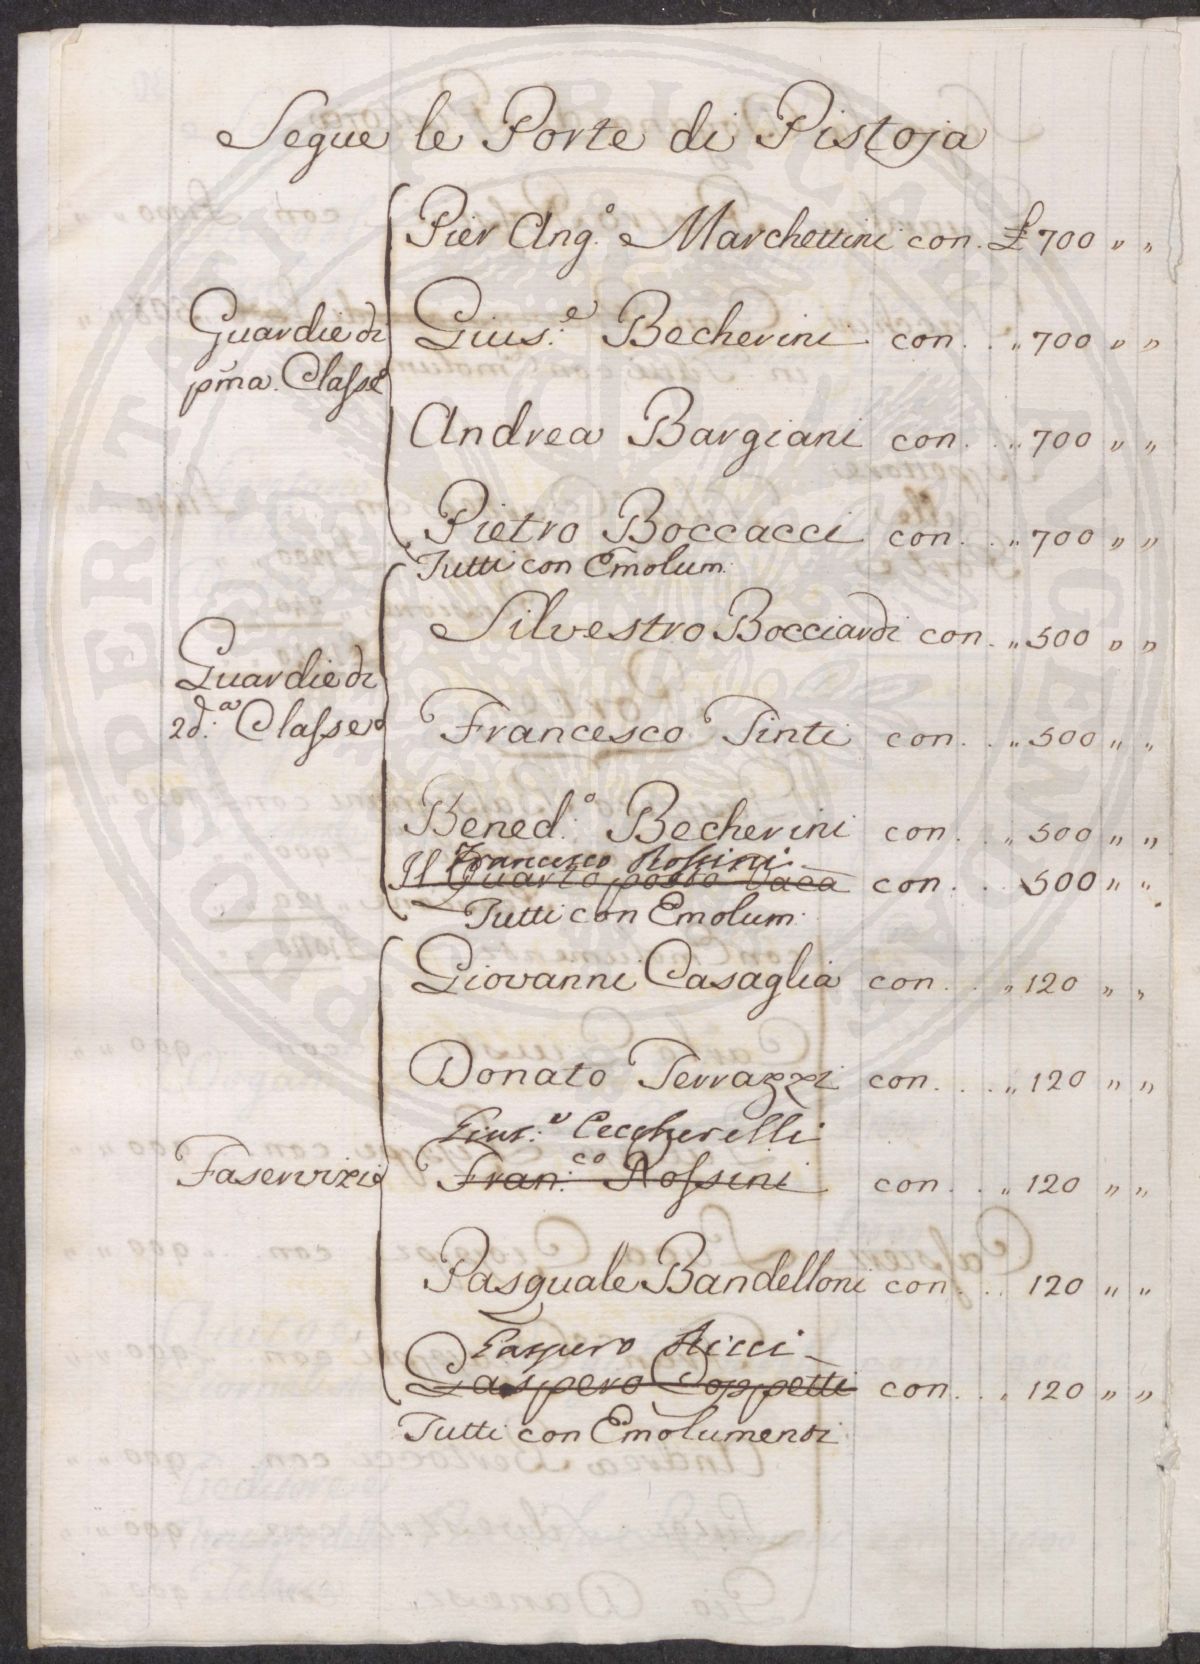 Segue le Porte di Pistoja
Pier Ang.º Marchettini con. £ 700 " "
Guardie di
pma. Classe
Gius.e Becherini con. . " 700 " "
Andrea Bargiani con. . " 700 " "
Pietro Boccacci con. . " 700 " "
Tutti con Emolum:
Silvestro Bocciardi con. " 500 " "
Guardie di
2d.a Classe
Francesco Tinti con. . " 500 " "
Bened.º Becherini con. . " 500 " "
Francesco Rossini
Il Quarto posto Vaca con. . 500 " "
Tutti con Emolum:
Giovanni Casaglia con. . " 120 " "
Donato Terrazzi con. . . " 120 " "
Gius.e Ceccherelli
Faservizi
Fran.co Rossini con. . " 120 " "
Pasquale Bandelloni con. . . 120 " "
Gaspero Ricci
Gaspero Poppetti con. . " 120 " "
Tutti con Emolumenti
PROSPERITATI PUBLICAE AUGENDAE